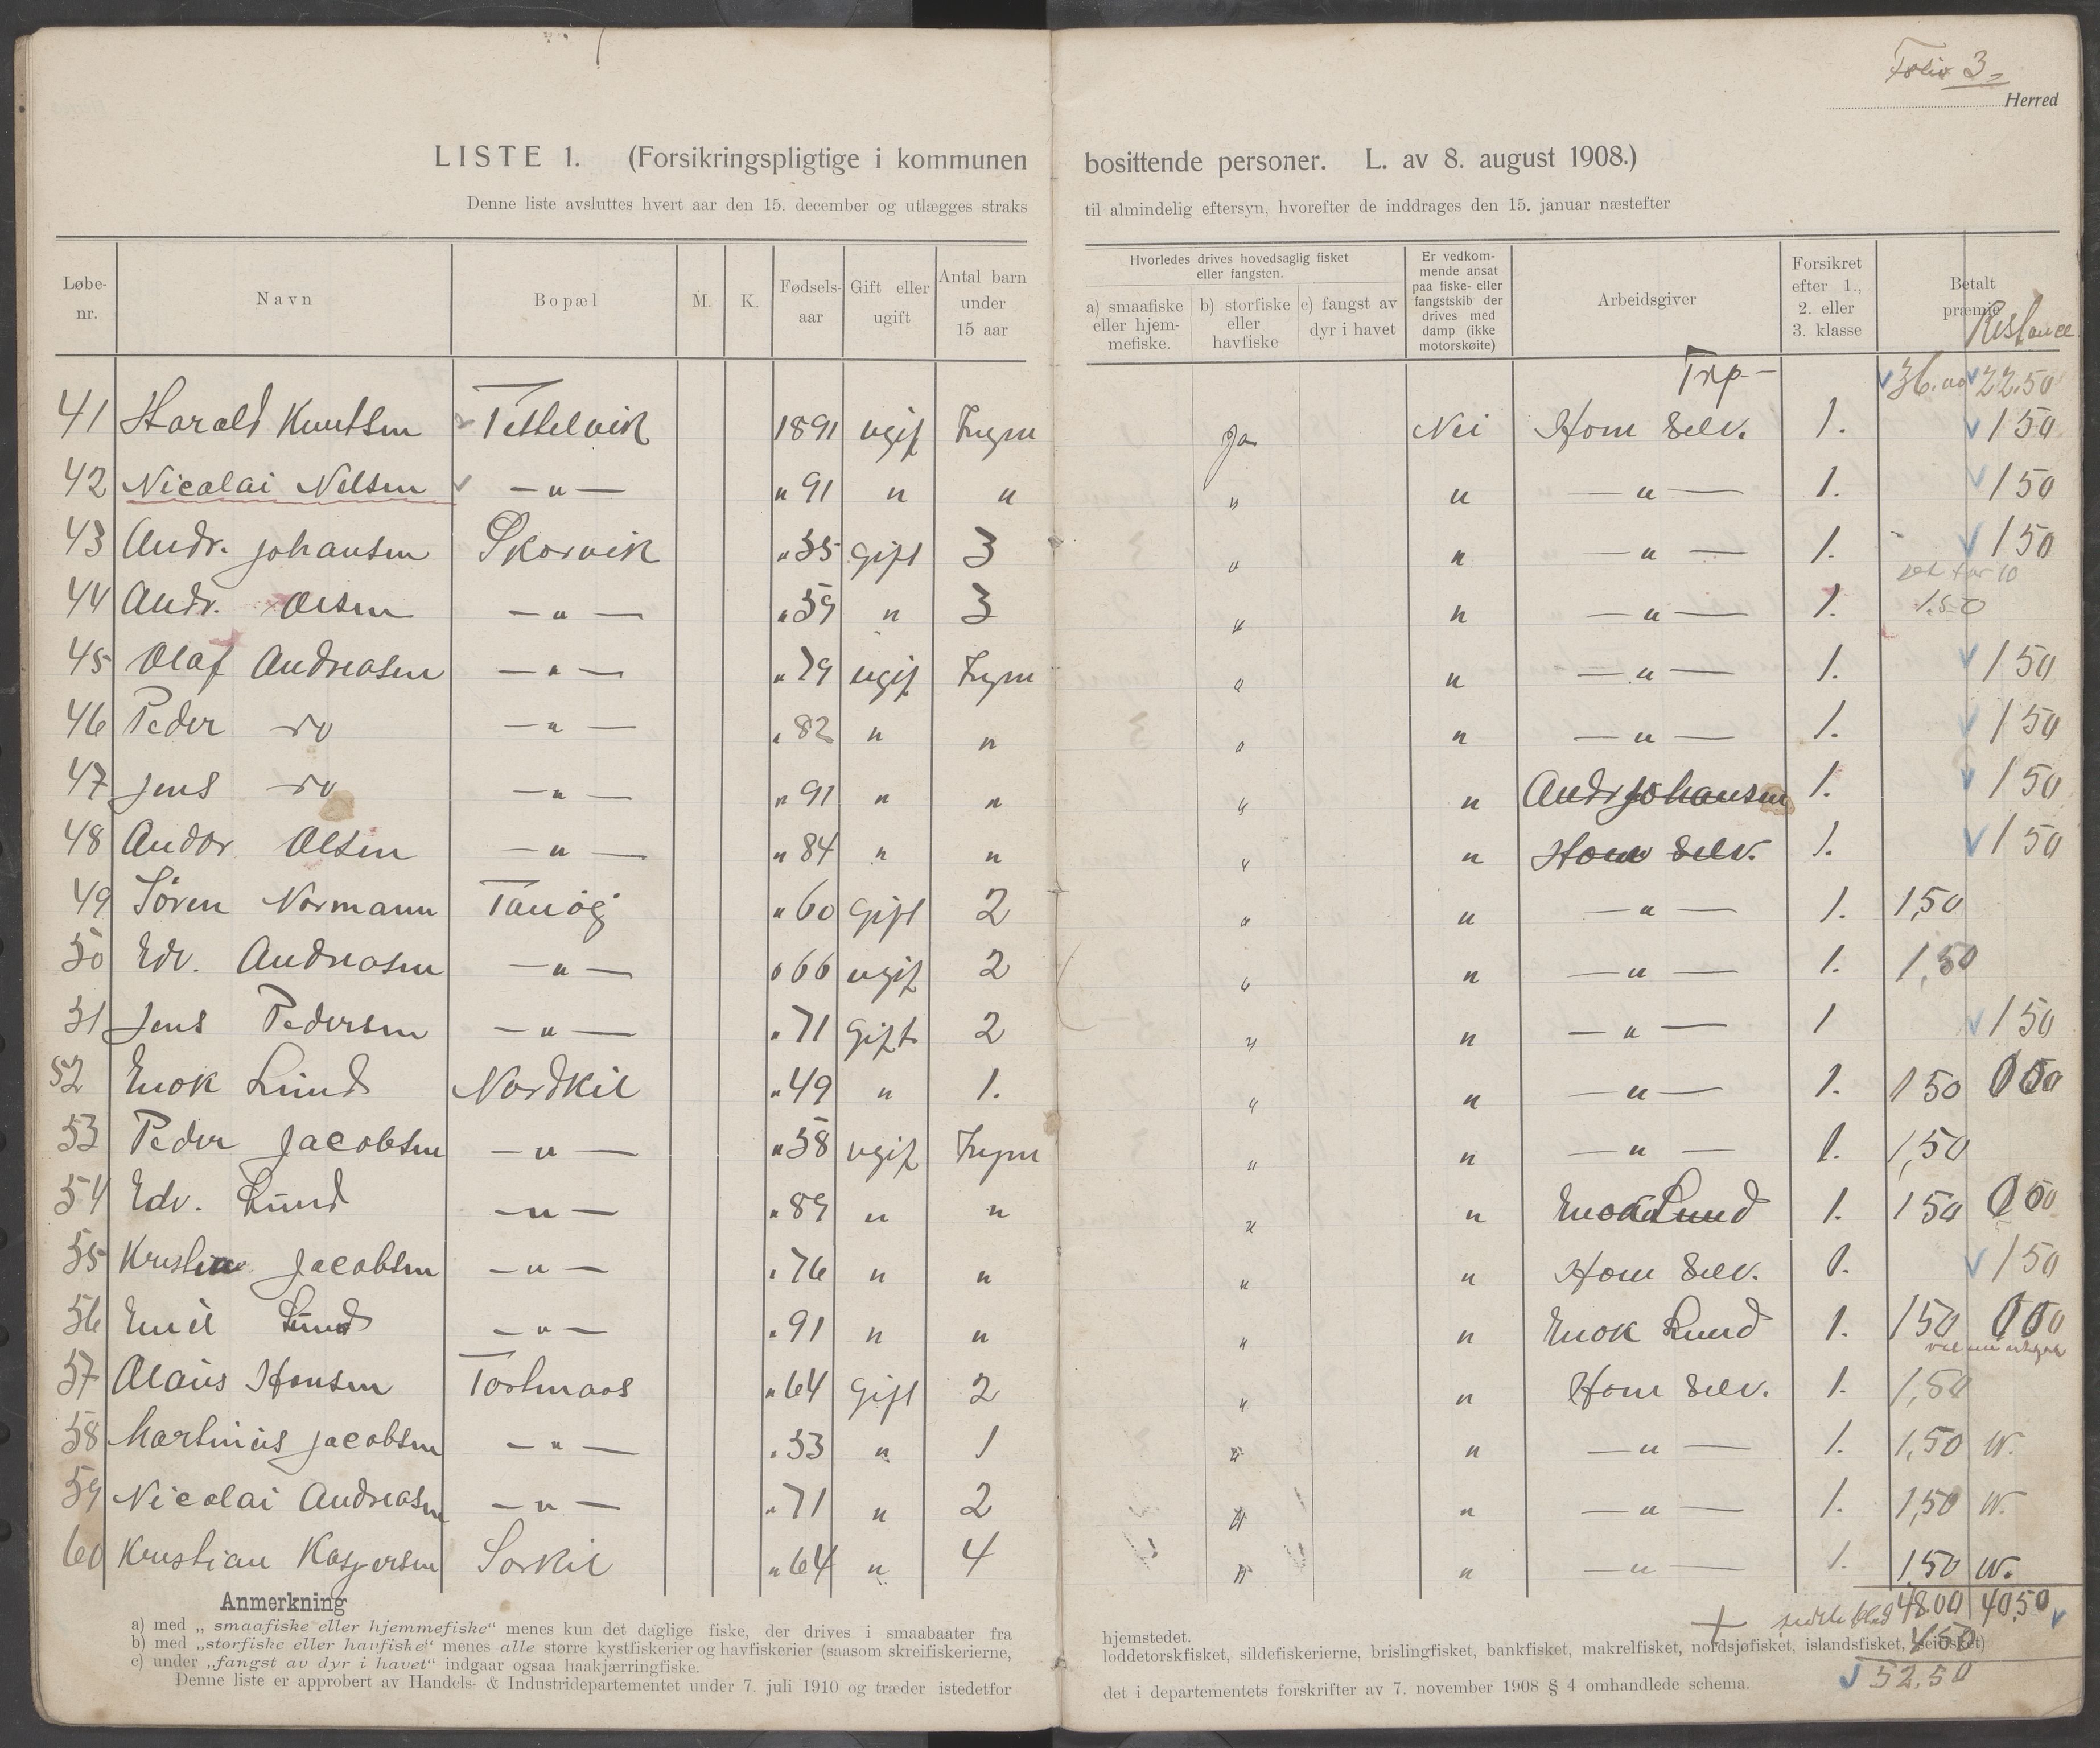 Folio 3
Herred
LISTE 1. (Forsikringspligtige i kommunen bosittende personer. L. av 8. august 1908.)
Denne liste avsluttes hvert aar den 15. december og utlægges straks til almindelig eftersyn, hvorefter de inddrages den 15. januar næstefter
Løbe-nr. Navn Bopæl M. K. Fødsels-aar Gift eller ugift Antal barn under 15 aar Hvorledes drives hovedsaglig fisket eller fangsten. a) smaafiske eller hjem-mefiske. b) storfiske eller havfiske c) fangst av dyr i havet Er vedkom-mende ansat paa fiske- eller fangstskib der drives med damp (ikke motorskøite) Arbeidsgiver Forsikret efter 1., 2. eller 3. klasse Betalt præmie Restance
Trp- 36.00 22.50
41 Harald Knutsen Tettelvik 1891 ugif Ingen Ja Nei Hom Selv. 1. 150
42 Nicolai Nilsen — " — " 91 " " " " — " — 1. 150
43 Andr. Johansen Skorvik " 55 gift 3 " " — " — 1. 150
44 Andr. Olsen — " — " 59 " 3 " " — " — 1. 1.50
45 Olaf Andreasen — " — " 79 ugif Ingen " " — " — 1. 150
46 Peder do — " — " 82 " " " " — " — 1. 150
47 Jens do — " — " 91 " " " " Andr Johansen 1. 150
48 Andor Olsen — " — " 84 " " " " Hom Selv. 1. 150
49 Sören Normann Tanög " 60 Gift 2 " " — " — 1. 1,50
50 Edv. Andreasen — " — " 66 ugif 2 " " — " — 1. 1,50
51 Jens Pedersen — " — " 71 Gift 2 " " — " — 1 150
52 Enok Lund Nordkil " 49 " 1. " " — " — 1. 150
53 Peder Jacobsen — " — " 58 ugif Ingen " " — " — 1. 1,50
54 Edv. Lund — " — " 89 " " " " Enok Lund 1. 150
55 Kristian Jacobsen — " — " 76 " " " " Hom Selv. 1. 150
56 Emil Lund — " — " 91 " " " " Enok Lund 1. 150
57 Olaus Hansen Tortmoos " 64 Gift 2 " " Hom Selv. 1. 1,50
58 Martinius Jacobsen — " — " 53 " 1 " " — " — 1. 1,50 W.
59 Nicolai Andreasen — " — " 71 " 2 " " — " — 1. 1,50 W.
60 Kristian Kaspersen Sorkil " 64 " 4 " " — " — 1. 1.50 W.
48.00 40,50
4 50
52.50
Anmerkning
a) med „smaafiske eller hjemmefiske“ menes kun det daglige fiske, der drives i smaabaater fra hjemstedet.
b) med „storfiske eller havfiske“ menes alle større kystfiskerier og havfiskerier (saasom skreifiskerierne, loddetorskfisket, sildefiskerierne, brislingfisket, bankfisket, makrelfisket, nordsjøfisket, islandsfisket, seifisket)
c) under „fangst av dyr i havet“ indgaar ogsaa haakjærringfiske.
Denne liste er approbert av Handels- & Industridepartementet under 7. juli 1910 og træder istedetfor det i departementets forskrifter av 7. november 1908 § 4 omhandlede schema.